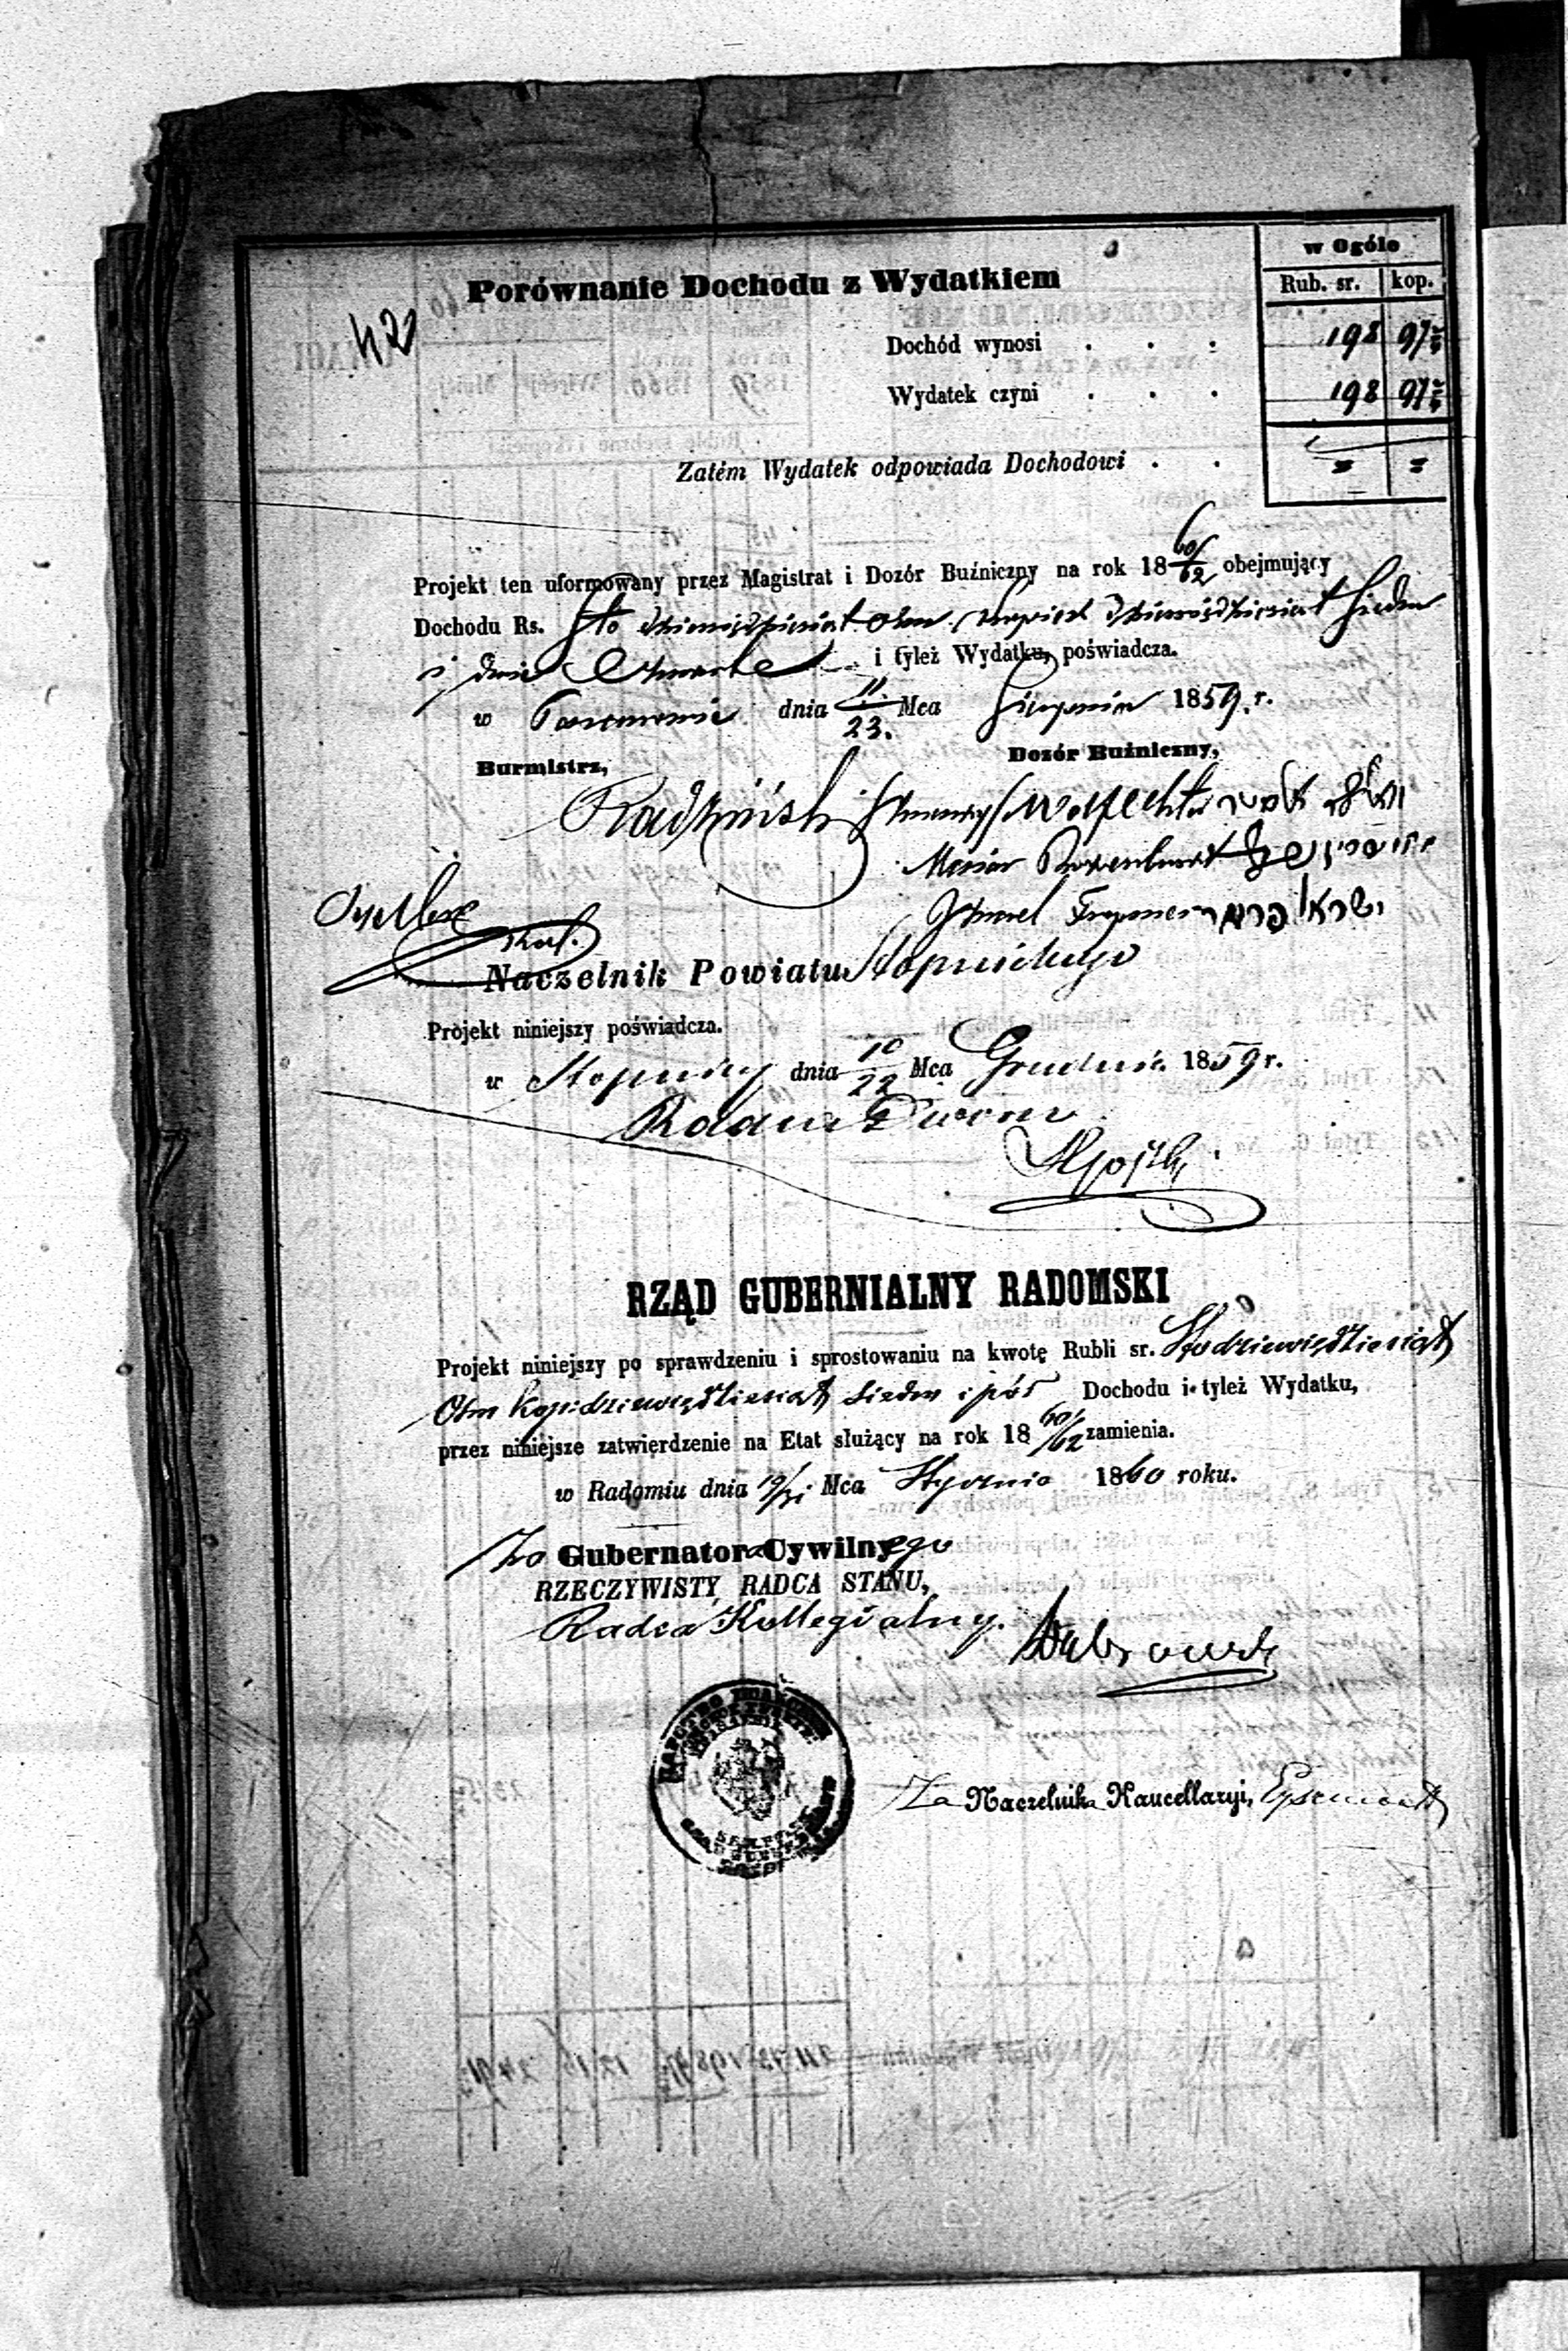 w Ogóle
Porównanie Dochodu z Wydatkiem
Rub. sr. kop.
42
Dochód wynosi . . . 198 97 2/4
Wydatek czyni . . . 198 97 2/4
Zatém Wydatek odpowiada Dochodowi . . = =
Projekt ten uformowany przez Magistrat i Dozór Buźniczny na rok 18 60/62 obejmujący
Dochodu Rs. Sto dziewiędziesiat ośm kopiek dziewiędziesiat siedm
i dwie Czwarte i tyleż Wydatku, poświadcza.
w dnia 11/23. Mca Sierpnia 1859. r.
Burmistrz, Dozór Buźniczny,
Radziński
ישראל
Naczelnik Powiatu Stopnickiego
Projekt niniejszy poświadcza.
w Stopnicy dnia 10/22 Mca Grudnia 1859 r.
Radca Dworu
RZĄD GUBERNIALNY RADOMSKI
Projekt niniejszy po sprawdzeniu i sprostowaniu na kwotę Rubli sr. Stodziewiędziesiąt
Ośm kop: dziewiędziesiąt siedm i pół Dochodu i tyleż Wydatku,
przez niniejsze zatwierdzenie na Etat służący na rok 18 60/62 zamienia.
w Radomiu dnia 19/31 Mca Stycznia 1860 roku.
Za Gubernatora Cywilnego
RZECZYWISTY RADCA STANU,
Radca Kollegialny.
Za Naczelnika Kancellaryi,